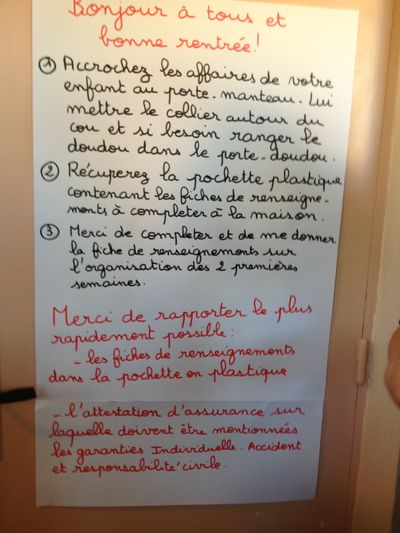 Bonjour à tous et
bonne rentrée!
① Accrochez les affaires de votre
enfant au porte-manteau. Lui
mettre le collier autour du
cou et si besoin ranger le
doudou dans le porte-doudou.
② Récuperez la pochette plastique
contenant les fiches de renseigne-
ments à completer à la maison.
③ Merci de completer et de me donner
la fiche de renseignements sur
l'organisation des 2 premières
semaines.
Merci de rapporter le plus
rapidement possible:
- les fiches de renseignements
dans la pochette en plastique
- l'attestation d'assurance sur
laquelle doivent être mentionnées
les garanties Individuelle. Accident
et responsabilité civile.